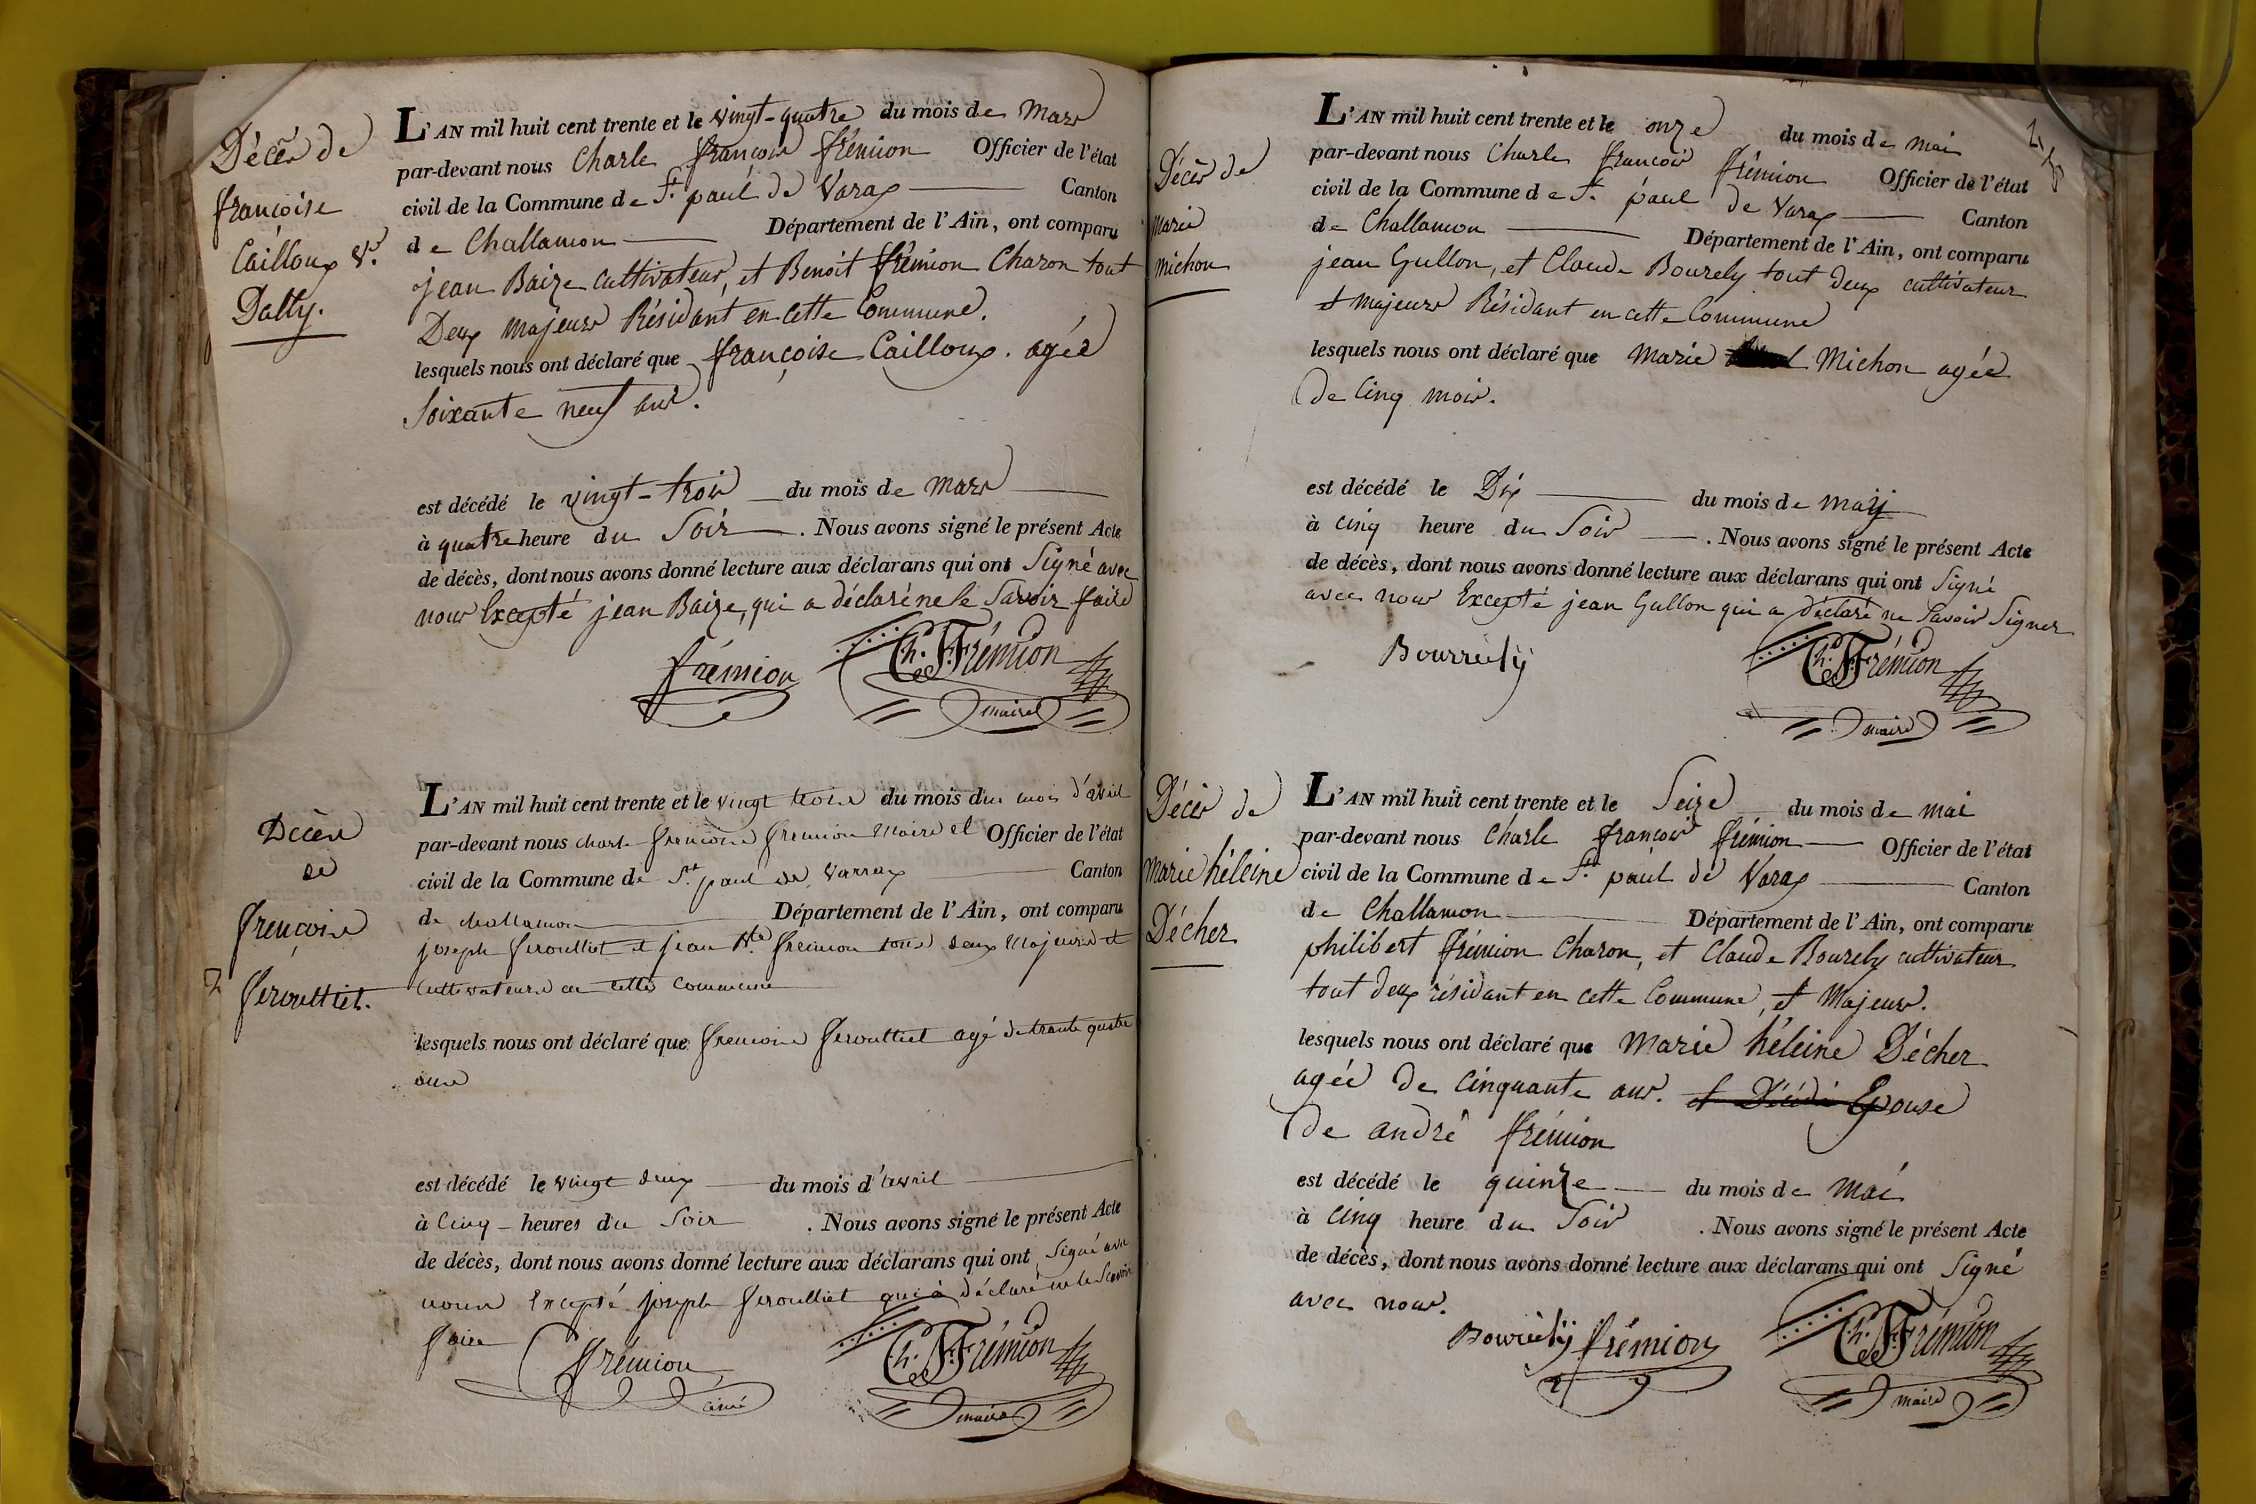 Décès de
françoise
Cailloux Ve.
Datty.
L'AN mil huit cent trente et le vingt-quatre du mois de Mars
par-devant nous Charle françois frémion Officier de l'état
civil de la Commune de St. paul de Varax Canton
de Challamon Département de l'Ain, ont comparu
jean Baize cultivateur, et Benoit frémion Charon tout
Deux majeurs Résidant en cette Commune.
lesquels nous ont déclaré que françoise Cailloux. agée
Soixante neuf ans.
est décédé le vingt-trois du mois de Mars
à quatre heure du Soir . Nous avons signé le présent Acte
de décès, dont nous avons donné lecture aux déclarans qui ont Signé avec
nous Excepté jean Baize, qui a déclaré ne le Savoir faire
frémion Ch. F. Frémion
maire
Décès
de
françoise
feroulliet.
L'AN mil huit cent trente et le vingt trois du mois du mois d'avril
par-devant nous charle françois fremion Maire et Officier de l'état
civil de la Commune de St. paul de Varrax Canton
de challamon Département de l'Ain, ont comparu
joseph feroulliet et jean Bte fremion tous deux Majeurs et
Cultivateurs en cette commune
lesquels nous ont déclaré que francoise feroulliet agé de trante quatre
ans
est décédé le vingt deux du mois d'avril
à Cinq heures du Soir . Nous avons signé le présent Acte
de décès, dont nous avons donné lecture aux déclarans qui ont Signé avec
nous Excepté joseph feroulliet qui à déclaré ne le Scavoir
faire
frémion Ch. F. Frémion
maire
Décès de
Marie
Michon
L'AN mil huit cent trente et le onze du mois de mai
par-devant nous Charle francois frémion Officier de l'état
civil de la Commune de St. paul de Varax Canton
de Challamon Département de l'Ain, ont comparu
jean Gullon, et Claude Bourely tout deux cultivateur
et Majeurs Résidant en cette Commune
lesquels nous ont déclaré que Marie Michon agée
De Cinq mois.
est décédé le Dix du mois de Maij
à Cinq heure du Soir . Nous avons signé le présent Acte
de décès, dont nous avons donné lecture aux déclarans qui ont Signé
avec nous Excepté jean Gullon qui a déclaré ne Savoir Signer
Bourrely Ch. F. Frémion
maire
Décès de
Marie héleine
Décher
L'AN mil huit cent trente et le Seize du mois de mai
par-devant nous Charle françois frémion Officier de l'état
civil de la Commune de St. paul de Varax Canton
de Challamon Département de l'Ain, ont comparu
philibert frémion Charon, et Claude Bourely cultivateur
tout deux résidant en cette Commune, et Majeur.
lesquels nous ont déclaré que Marie héleine Décher
agée de Cinquante ans. et Décédé Epouse
De andré frémion
est décédé le quinze du mois de Mai
à Cinq heure du Soir . Nous avons signé le présent Acte
de décès, dont nous avons donné lecture aux déclarans qui ont Signé
avec nous.
Bourrely frémion Ch. F. Frémion
maire